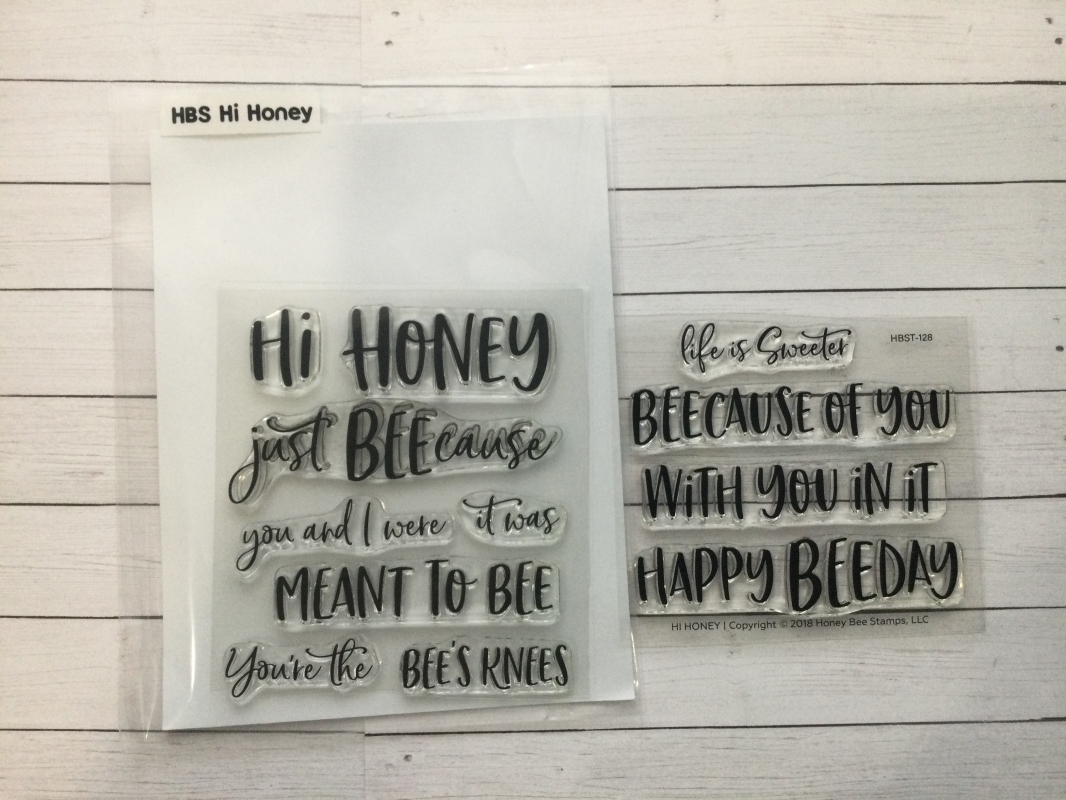 HBS Hi Honey
Hi HONEY
just BEEcause
you and I were it was
MEANT TO BEE
You're the BEE'S KNEES
HBST-128
life is Sweeter
BEECAUSE OF YOU
WiTH YOU iN iT
HAPPY BEEDAY
HI HONEY | Copyright © 2018 Honey Bee Stamps, LLC